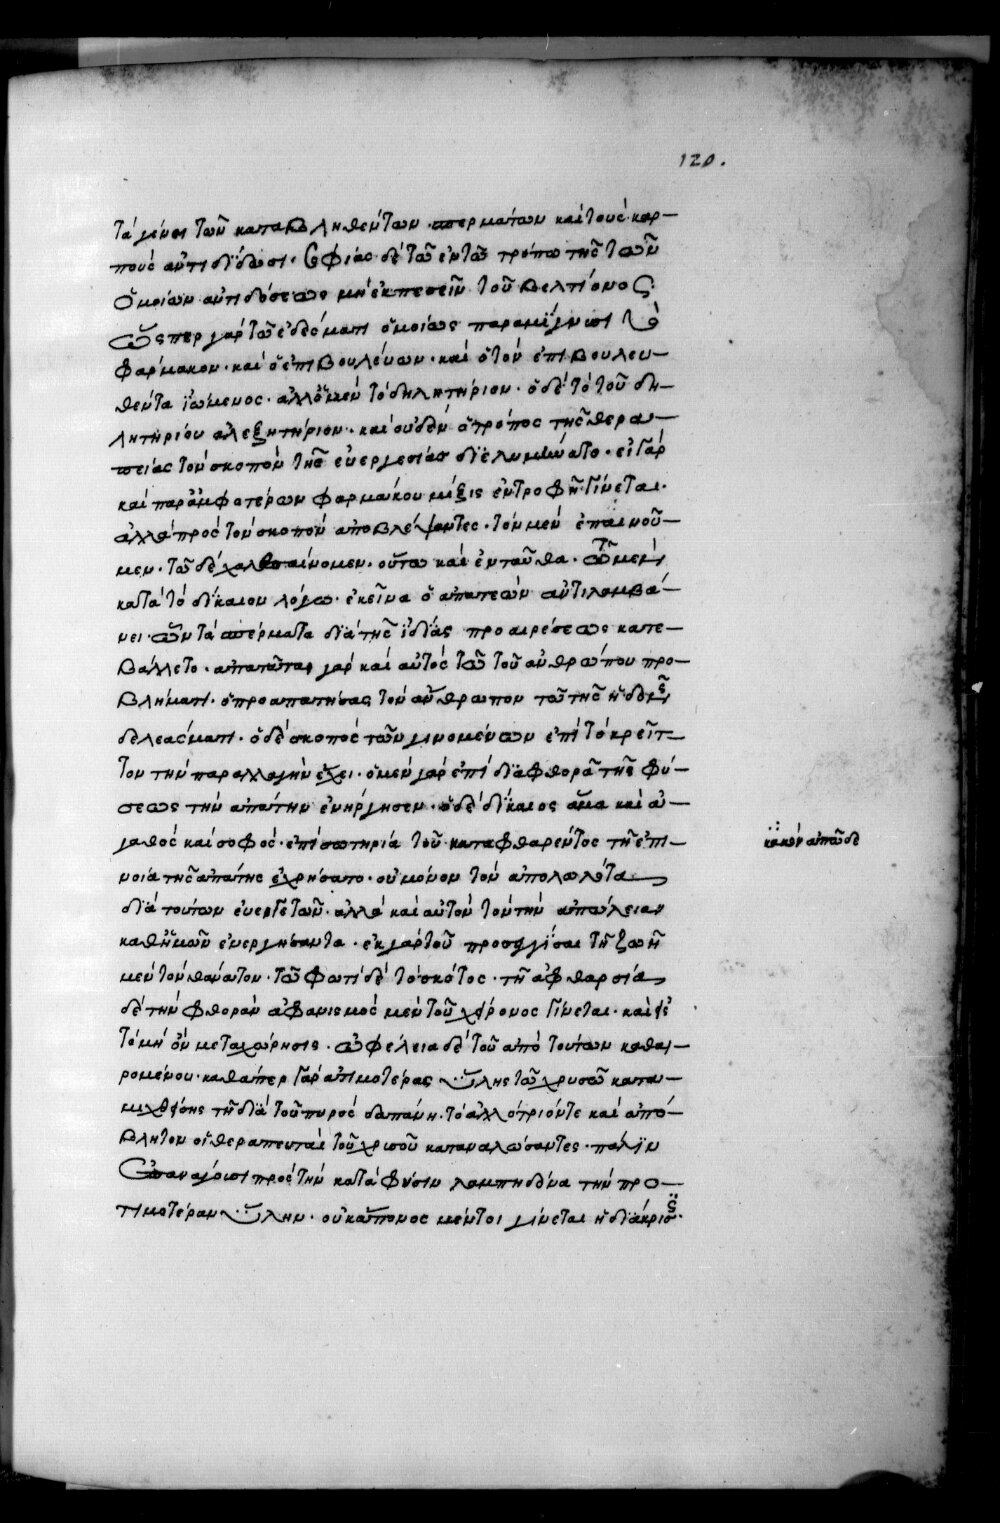 120.
τὰ γένοι τῶν καταβληθέντων σπερμάτων καὶ τοὺς καρ-
ποὺς ἀντιδίδωσι. σοφίας δὲ τῶ ἐν τῶ τρόπω τῆς τῶν
ὁμοίων ἀντιδόσεως μὴ ἐκπεσεῖν τοῦ βελτίονος
ὥσπερ γὰρ τῶ ἐδέσματι ὁμοίως παραμίγνυσι τὸ
φάρμακον. καὶ ὁ ἐπιβουλεύων. καὶ ὁ τὸν ἐπιβουλευ-
θέντα ἰώμενος. ἀλλ' ὁ μὲν τὸ δηλητήριον. ὁ δὲ τὸ τοῦ δη-
λητηρίου ἀλεξητήριον. καὶ οὐδὲν ὁ τρόπος τῆς θερα-
πείας τὸν σκοπὸν τῆς εὐεργεσίας διελυμήνατο. εἰ γὰρ
καὶ παρ' ἀμφοτέρων φαρμάκου μίξις ἐν τροφῆ γίνεται.
ἀλλὰ πρὸς τὸν σκοπὸν ἀποβλέψαντες. τὸν μὲν ἐπαινοῦ-
μεν. τῶ δὲ χαλεπαίνομεν. οὕτω καὶ ἐνταῦθα. τῶ μὲν
κατὰ τὸ δίκαιον λόγω. ἐκεῖνα ὁ ἀπατεὼν ἀντιλαμβά-
νει. ὧν τὰ σπέρματα διὰ τῆς ἰδίας προαιρέσεως κατε-
βάλλετο. ἀπατᾶται γὰρ καὶ αὐτὸς τῶ τοῦ ἀνθρώπου προ-
βλήματι. ὁ προαπατήσας τὸν ἄνθρωπον τῶ τῆς ἡδονῆς
δελεάσματι. ὁ δὲ σκοπὸς τῶν γινομένων ἐπὶ τὸ κρεῖτ-
τον τὴν παραλλαγὴν ἔχει. ὁ μὲν γὰρ ἐπὶ διαφθορᾶ τῆς φύ-
σεως τὴν ἀπάτην ἐνήργησεν. ὁ δὲ δίκαιος ἅμα καὶ ἀ-
γαθὸς καὶ σοφὸς. ἐπὶ σωτηρία τοῦ καταφθαρέντος τῆ ἐπι-
νοία τῆς ἀπάτης ἐχρήσατο. οὐ μόνον τὸν ἀπολωλότα
διὰ τούτων εὐεργετῶν. ἀλλὰ καὶ αὐτὸν τὸν τὴν ἀπώλειαν
καθ' ἡμῶν ἐνεργήσαντα. ἐκ γὰρ τοῦ προσεγγίσαι τῆ ζωῆ
μὲν τὸν θάνατον. τῶ φωτὶ δὲ τὸ σκότος. τῆ ἀφθαρσία
δὲ τὴν φθορὰν ἀφανισμὸς μὲν τοῦ χείρονος γίνεται. καὶ εἰ
τὸ μὴ ὂν μεταχώρησις. ὠφέλεια δὲ τοῦ ἀπὸ τούτων καθαι-
ρομένου. καθάπερ γὰρ ἀτιμοτέρας ὕλης τῶ χρυσῶ κατα-
μιχθείσης τῆ διὰ τοῦ πυρὸς δαπάνη. τὸ ἀλλότριόν τε καὶ ἀπό-
βλητον οἱ θεραπευταὶ τοῦ χρυσοῦ καταναλώσαντες. πάλιν
ἐπανάγουσι πρὸς τὴν κατὰ φύσιν λαμπηδόνα τὴν προ-
τιμοτέραν ὕλην. οὐκ ἄπονος μέντοι γίνεται ἡ διάκρισις.